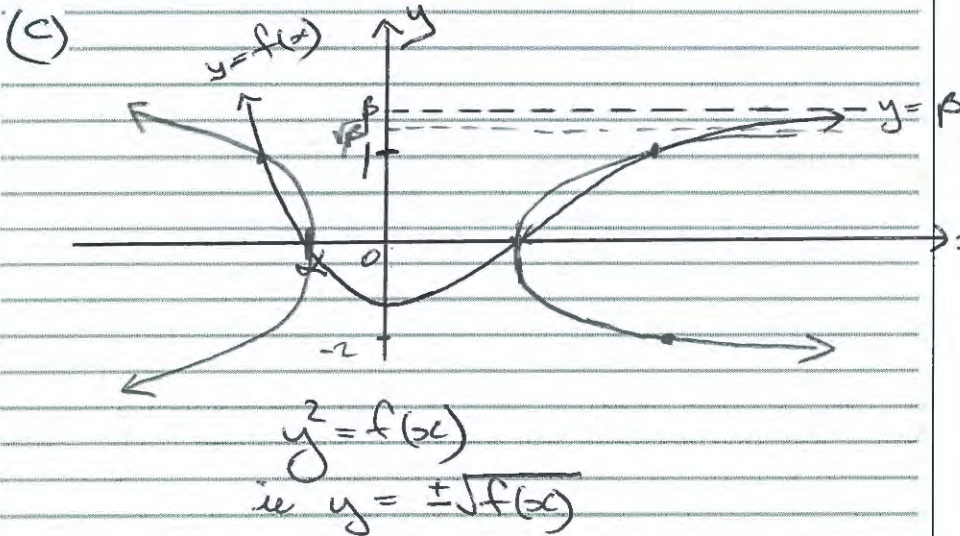 (c)
y
y=f(x)
β
y = β
√β
1
α
0
-2
y² = f(x)
ie y = ±√f(x)